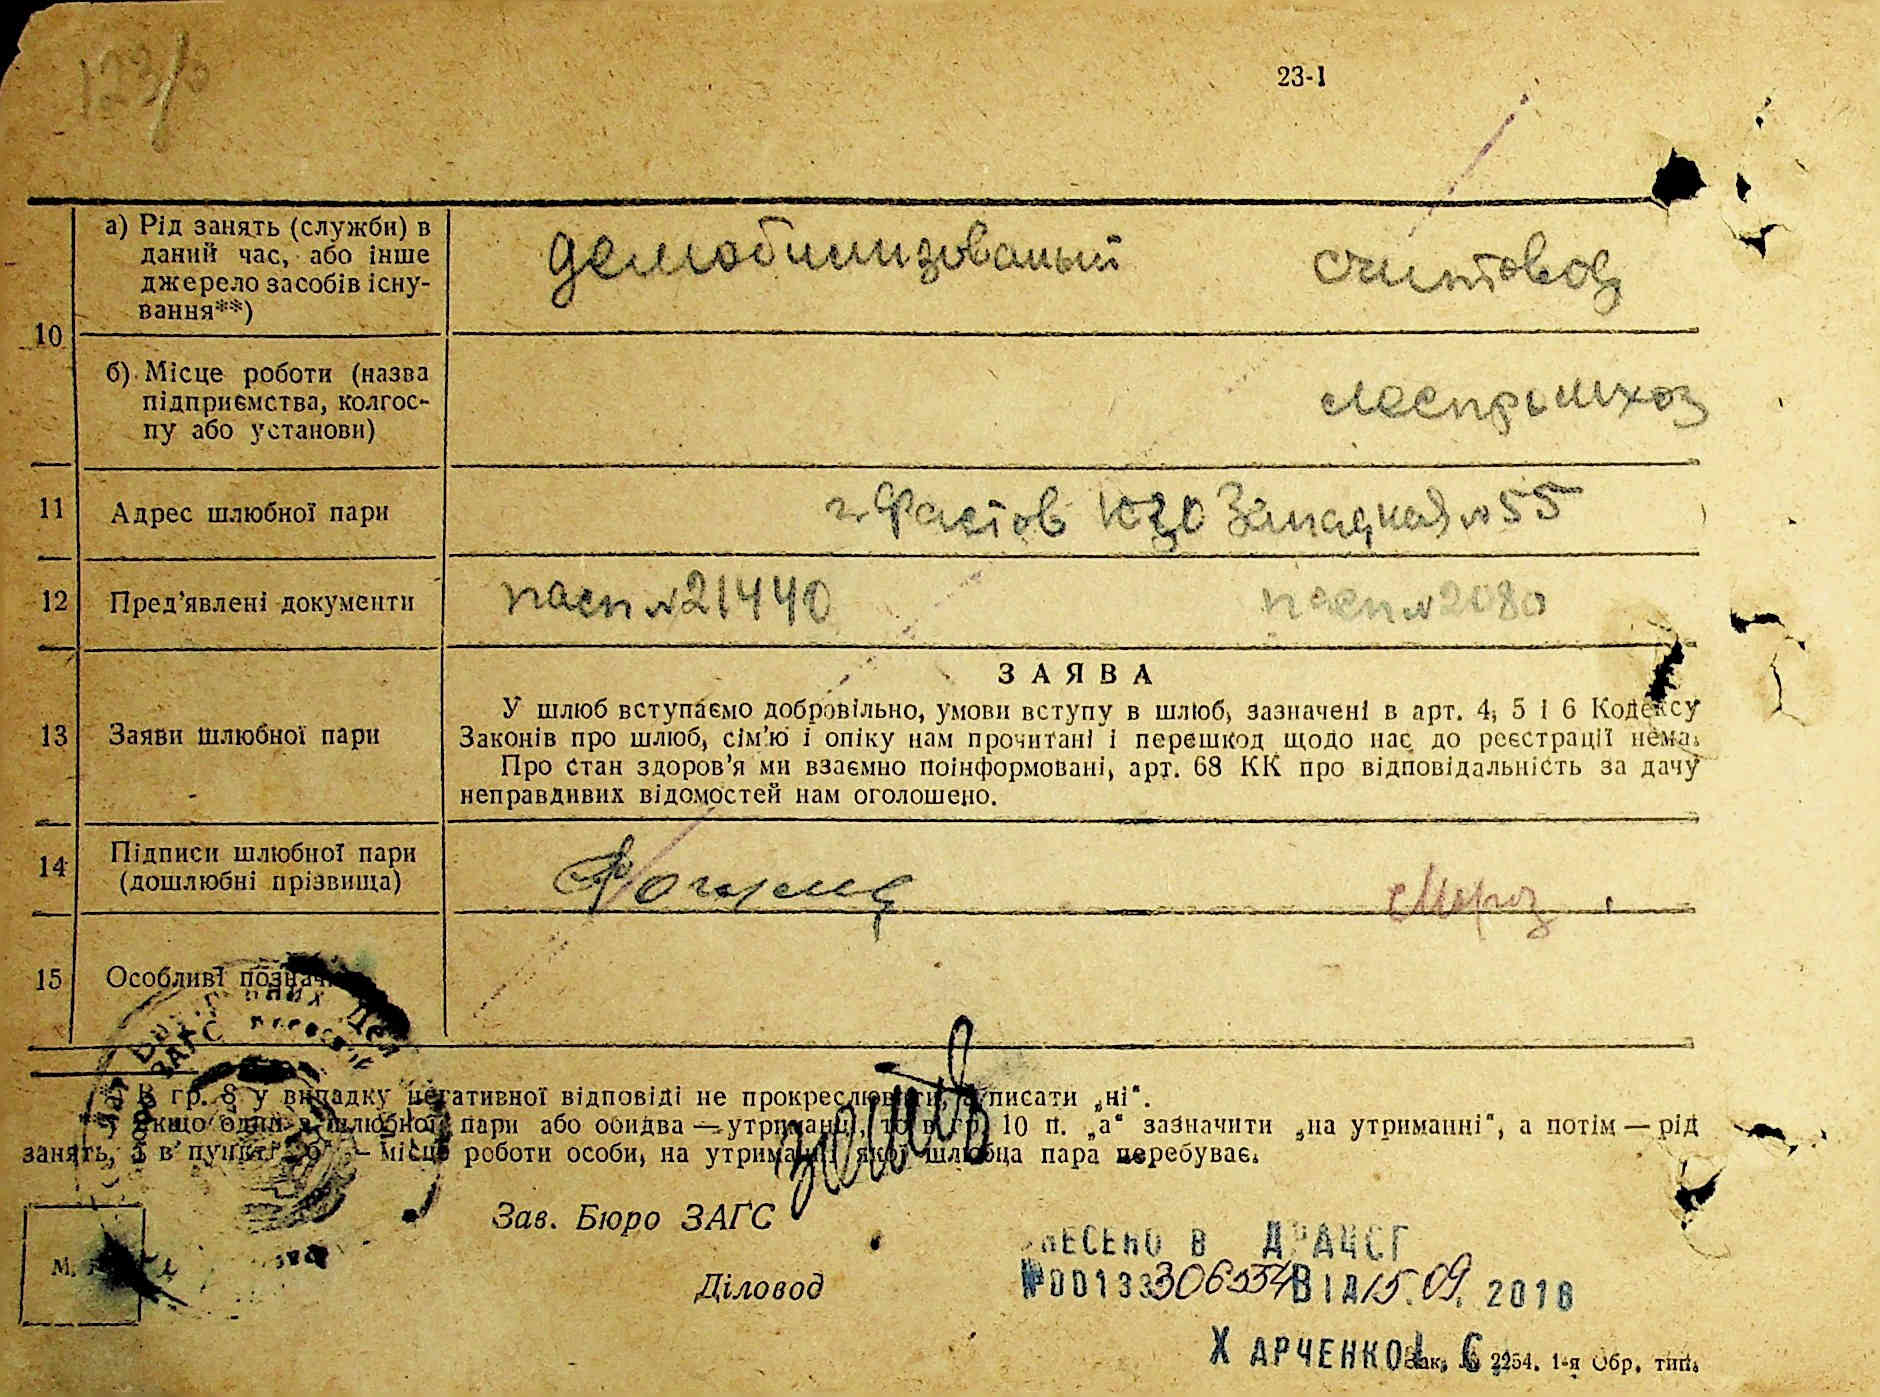 123/0
23-I
10
а) Рід занять (служби) в
даний час, або інше
джерело засобів існу-
вання**)
демобилизованый
счетовод
б) Місце роботи (назва
підприємства, колгос-
пу або установи)
леспромхоз
11
Адрес шлюбної пари
г. Фастов Западная № 55
12
Пред'явлені документи
пасп № 21440
пасп № 2080
ЗАЯВА
13
Заяви шлюбної пари
У шлюб вступаємо добровільно, умови вступу в шлюб, зазначені в арт. 4, 5 і 6 Кодексу
Законів про шлюб, сім'ю і опіку нам прочитані і перешкод щодо нас до реєстрації нема.
Про стан здоров'я ми взаємно поінформовані, арт. 68 КК про відповідальність за дачу
неправдивих відомостей нам оголошено.
14
Підписи шлюбної пари
(дошлюбні прізвища)
Мороз
15
Особливі позначки
ЗАГС
В гр. 8 у випадку негативної відповіді не прокреслювати, а писати „ні".
Якщо один з шлюбної пари або обидва — утриманці, то в гр. 10 п. „а" зазначити „на утриманні", а потім — рід
занять, а в пункті „б" — місце роботи особи, на утриманні якої шлюбна пара перебуває.
Зав. Бюро ЗАГС
Діловод
М.
ВНЕСЕНО В ДРАЦСГ
№00133306554 ВІД 15.09.2018
ХАРЧЕНКО І. С.
Зак. № 2254. 1-я Обр. тип.